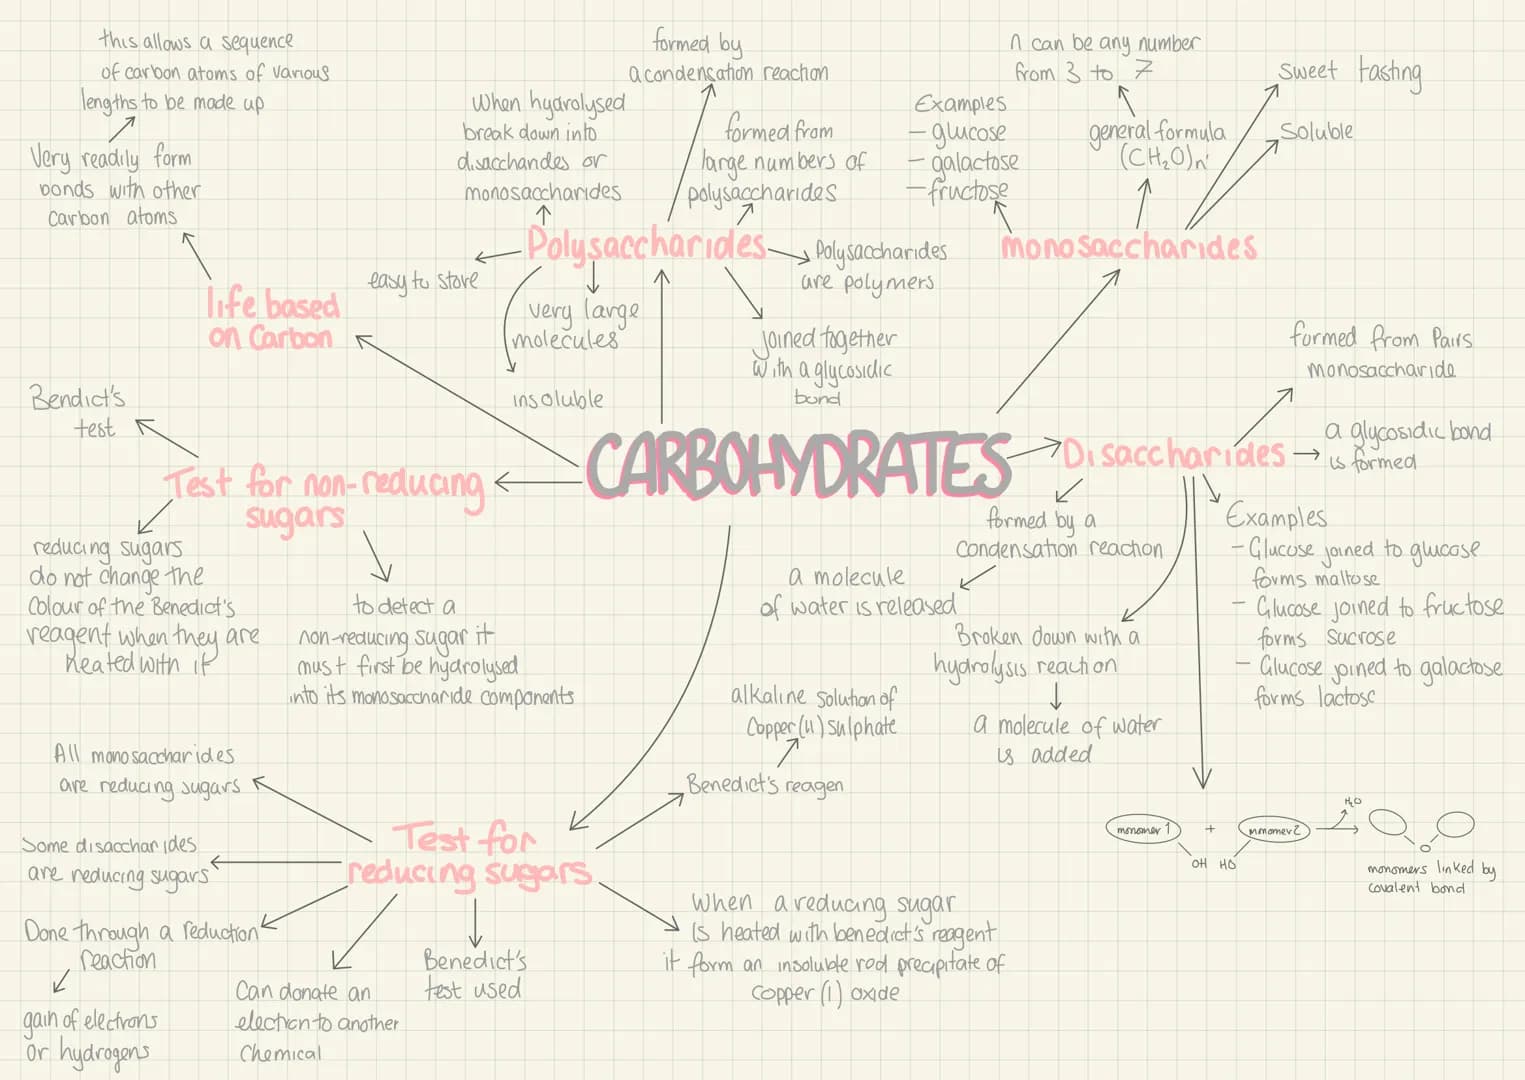 this allows a sequence
of carbon atoms of various
lengths to be made up
Very readily form
bonds with other
Carbon atoms
life based
on Carbon
formed by
a condensation reaction
When hydrolysed
break down into
disaccharides or
monosaccharides
formed from
large numbers of
polysaccharides
Polysaccharides
easy to store
very large
molecules
insoluble
Polysaccharides
are polymers
joined together
with a glycosidic
bond
n can be any number
from 3 to 7
Examples
- glucose
- galactose
- fructose
general formula
(CH₂O)n
Sweet tasting
Soluble
monosaccharides
CARBOHYDRATES
Disaccharides
formed from Pairs
monosaccharide
a glycosidic bond
is formed
formed by a
Condensation reaction
a molecule
of water is released
Broken down with a
hydrolysis reaction
a molecule of water
is added
Examples
- Glucose joined to glucose
forms maltose
- Glucose joined to fructose
forms sucrose
- Glucose joined to galactose
forms lactose
monomer 1
+
monomer 2
H₂O
OH HO
O
monomers linked by
covalent bond
Bendict's
test
Test for non-reducing
sugars
reducing sugars
do not change the
Colour of the Benedict's
reagent when they are
heated with it
to detect a
non-reducing sugar it
must first be hydrolysed
into its monosaccharide components
Test for
reducing sugars
All monosaccharides
are reducing sugars
Some disaccharides
are reducing sugars
Done through a reduction
reaction
gain of electrons
or hydrogens
Can donate an
election to another
Chemical
Benedict's
test used
Benedict's reagen
alkaline solution of
Copper (II) Sulphate
When a reducing sugar
is heated with benedict's reagent
it form an insoluble red precipitate of
Copper (I) oxide